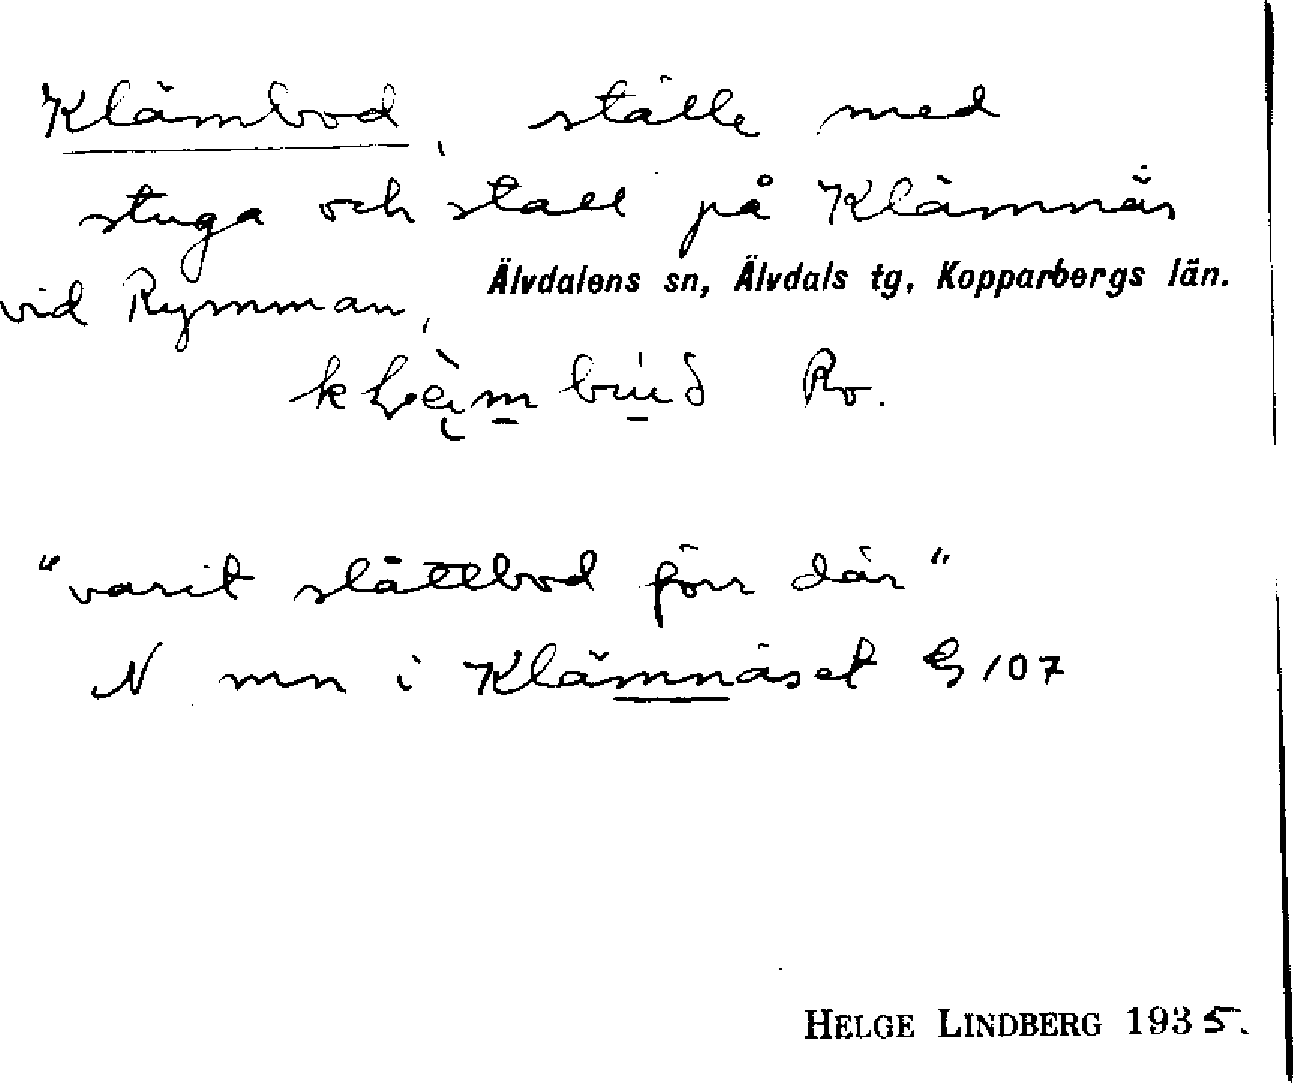 Klämbod, ställe med
stuga och stall på Klämnäs
Älvdalens sn, Älvdals tg, Kopparbergs län.
vid Rymman,
Ro.
"varit slåttbod förr där"
N mn i Klämnäset G 107
HELGE LINDBERG 1935.